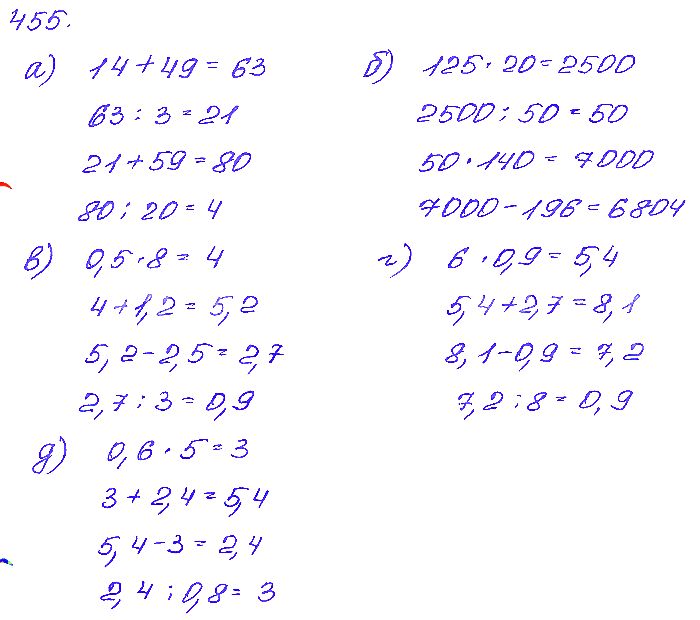 455.
а) 14 + 49 = 63
63 : 3 = 21
21 + 59 = 80
80 : 20 = 4
б) 125 · 20 = 2500
2500 : 50 = 50
50 · 140 = 7000
7000 - 196 = 6804
в) 0,5 · 8 = 4
4 + 1,2 = 5,2
5,2 - 2,5 = 2,7
2,7 : 3 = 0,9
г) 6 · 0,9 = 5,4
5,4 + 2,7 = 8,1
8,1 - 0,9 = 7,2
7,2 : 8 = 0,9
д) 0,6 · 5 = 3
3 + 2,4 = 5,4
5,4 - 3 = 2,4
2,4 : 0,8 = 3